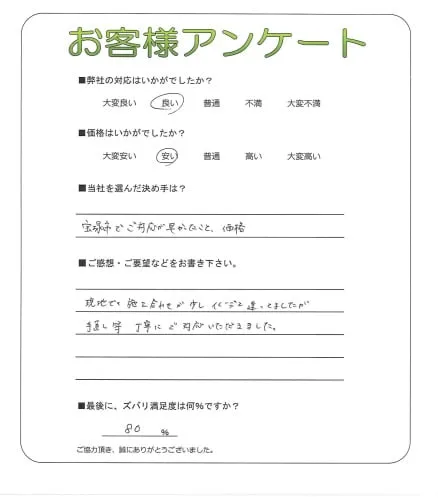 お客様アンケート
■弊社の対応はいかがでしたか？
大変良い 良い 普通 不満 大変不満
■価格はいかがでしたか？
大変安い 安い 普通 高い 大変高い
■当社を選んだ決め手は？
宝塚市でご対応が早かったこと、価格
■ご感想・ご要望などをお書き下さい。
現地での組み合わせが少し 違ってましたが
手直し等 丁寧にご対応いただきました。
■最後に、ズバリ満足度は何％ですか？
80 ％
ご協力頂き、誠にありがとうございました。